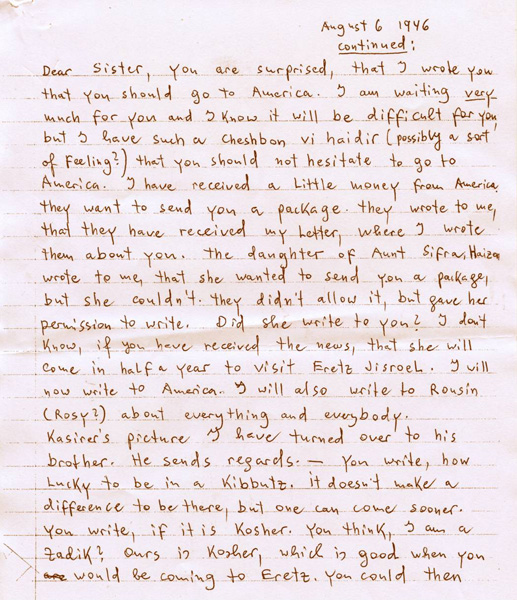 August 6 1946
continued:
Dear Sister, you are surprised, that I wrote you
that you should go to America. I am waiting very
much for you and I know it will be difficult for you,
but I have such a cheshbon vi haidir (possibly a sort
of Feeling?) that you should not hesitate to go to
America. I have received a Little money from America,
they want to send you a package. they wrote to me,
that they have received my Letter, where I wrote
them about you. the daughter of Aunt Sifra, Haiza
wrote to me, that she wanted to send you a package,
but she couldn't. they didn't allow it, but gave her
permission to write. Did she write to you? I don't
Know, if you have received the news, that she will
come in half a year to visit Eretz Jisroel. I will
now write to America. I will also write to Rousin
(Rosy?) about everything and everybody.
Kasirer's picture I have turned over to his
brother. He sends regards. — You write, how
Lucky to be in a Kibbutz. it doesn't make a
difference to be there, but one can come sooner.
You write, if it is Kosher. You think, I am a
Zadik? Ours is Kosher, which is good when you
would be coming to Eretz. You could then